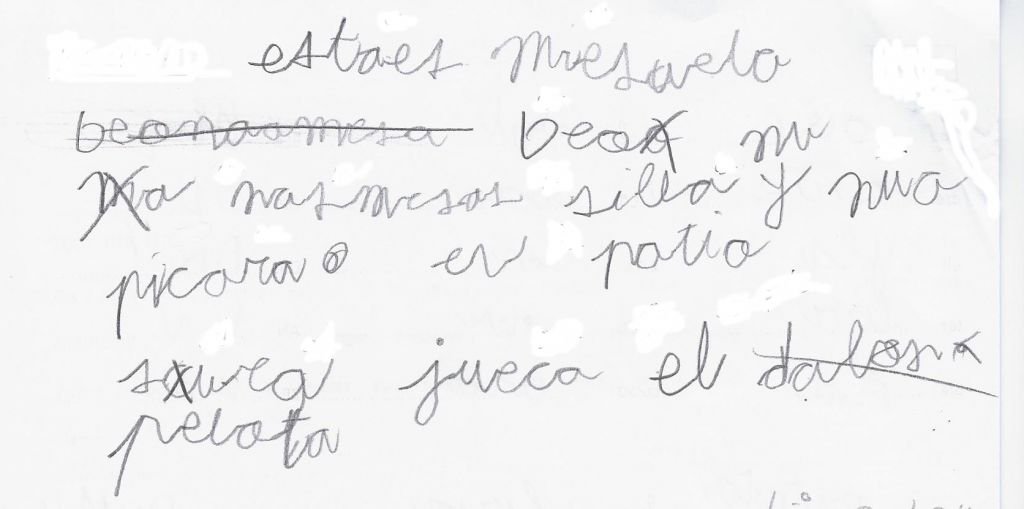 estaes muesavela
beonaamesa beoa nu
a nasmesas silla y nua
picara en patio
sureg jueca el
pelota